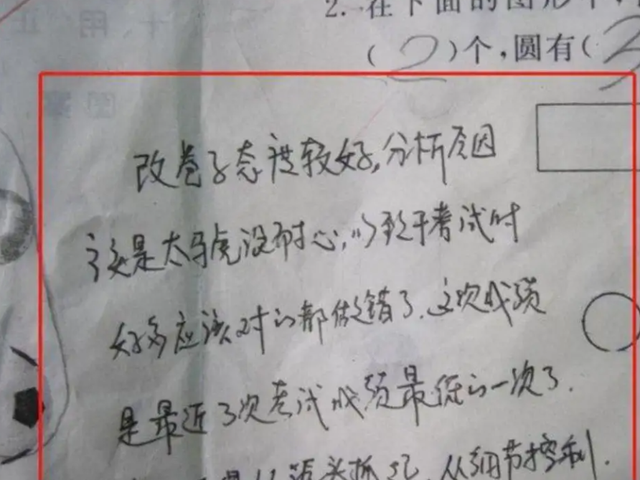 2. 在下面的图形中,
(2)个,圆有(3
改卷子态度较好,分析原因
主要是太马虎没耐心,以致于考试时
好多应该对的都做错了.这次成绩
是最近3次考试成绩最低的一次了.
头抓起,从细节控制.